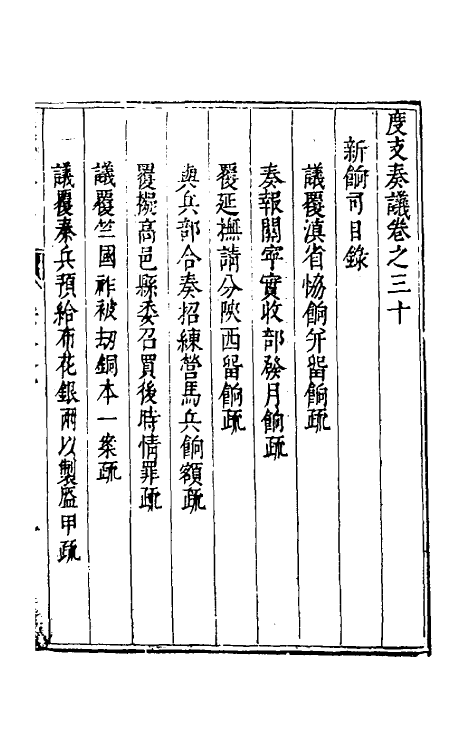 度支奏議卷之三十
新餉司目錄
議覆滇省恊餉并留餉疏
奏報關寧實收部發月餉疏
覆延撫請分陝西留餉疏
與兵部合奏招練營馬兵餉額疏
覆擬高邑縣委召買後時情罪疏
議覆竺國祚被刼銅本一案疏
議覆秦兵預給布花銀兩以製盔甲疏